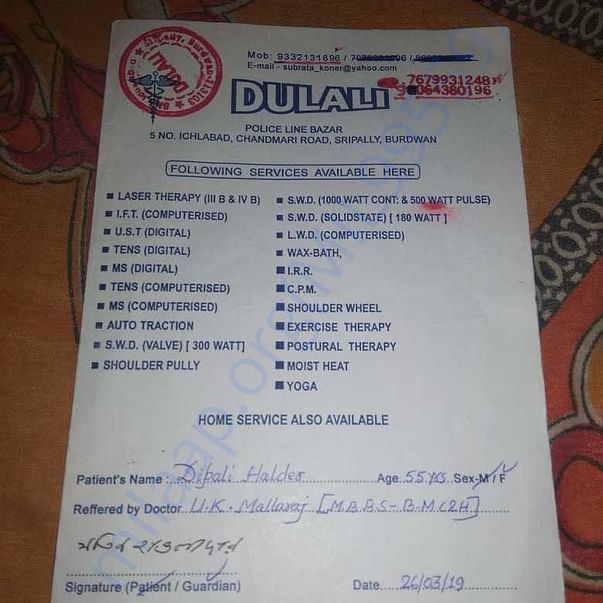 Mob: 9332131696 /
E-mail - subrata_koner@yahoo.com
7679931248
9064380196
DULALI
POLICE LINE BAZAR
5 NO. ICHLABAD, CHANDMARI ROAD, SRIPALLY, BURDWAN
FOLLOWING SERVICES AVAILABLE HERE
■ LASER THERAPY (III B & IV B)
■ I.F.T. (COMPUTERISED)
■ U.S.T (DIGITAL)
■ TENS (DIGITAL)
■ MS (DIGITAL)
■ TENS (COMPUTERISED)
■ MS (COMPUTERISED)
■ AUTO TRACTION
■ S.W.D. (VALVE) [ 300 WATT]
■ SHOULDER PULLY
■ S.W.D. (1000 WATT CONT: & 500 WATT PULSE)
■ S.W.D. (SOLIDSTATE) [ 180 WATT ]
■ L.W.D. (COMPUTERISED)
■ WAX-BATH,
■ I.R.R.
■ C.P.M.
■ SHOULDER WHEEL
■ EXERCISE THERAPY
■ POSTURAL THERAPY
■ MOIST HEAT
■ YOGA
HOME SERVICE ALSO AVAILABLE
Patient's Name :.. Dipali Halder Age 55 yrs Sex-M / F
Reffered by Doctor U.K. Mallaraj [M.B.B.S-
Signature (Patient / Guardian) Date 26/03/19